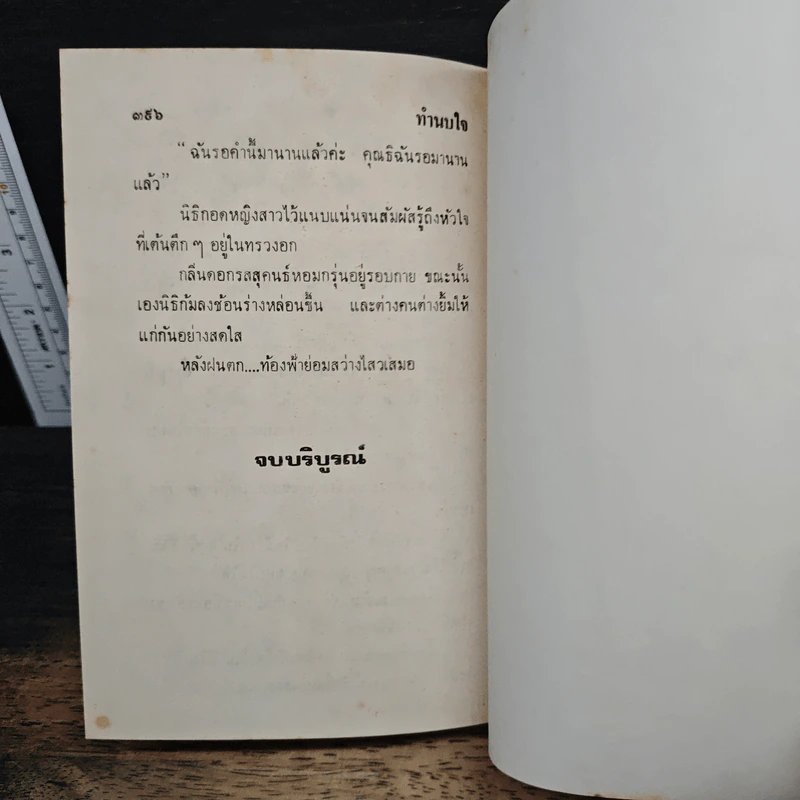 ๓๙๖ ทำนบใจ
“ฉันรอคำนี้มานานแล้วค่ะ คุณธิฉันรอมานาน
แล้ว”
นิธิกอดหญิงสาวไว้แนบแน่นจนสัมผัสรู้ถึงหัวใจ
ที่เต้นตึก ๆ อยู่ในทรวงอก
กลิ่นดอกรสสุคนธ์หอมกรุ่นอยู่รอบกาย ขณะนั้น
เองนิธิก้มลงช้อนร่างหล่อนขึ้น และต่างคนต่างยิ้มให้
แก่กันอย่างสดใส
หลังฝนตก....ท้องฟ้าย่อมสว่างไสวเสมอ
จบบริบูรณ์
3
2